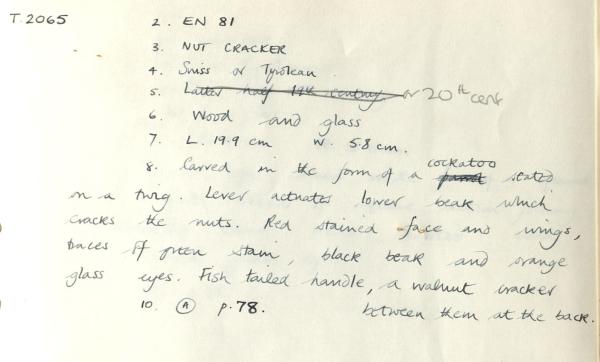 T.2065 2. EN 81
3. NUT CRACKER
4. Swiss or Tyrolean
5. Latter half 19th century or 20th cent
6. Wood and glass
7. L. 19.9 cm W. 5.8 cm.
8. Carved in the form of a parrot cockatoo seated
on a twig. Lever actuates lower beak which
cracks the nuts. Red stained face and wings,
traces of green stain, black beak and orange
glass eyes. Fish tailed handle, a walnut cracker
between them at the back.
10. A p.78.